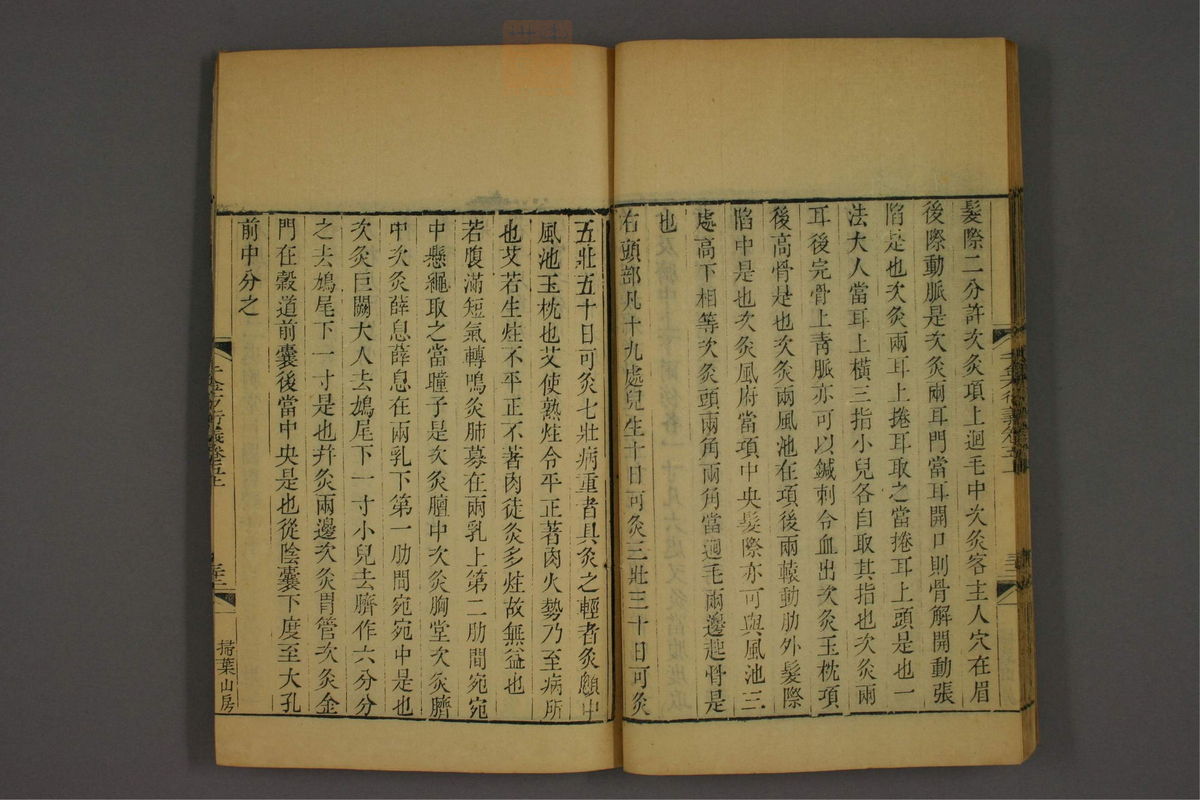 髮際二分許次灸項上迴毛中次灸客主人穴在眉
後際動脈是次灸兩耳門當耳開口則骨解開動張
陷是也次灸兩耳上捲耳取之當捲耳上頭是也一
法大人當耳上橫三指小兒各自取其指也次灸兩
耳後完骨上青脈亦可以鍼刺令血出次灸玉枕項
後高骨是也次灸兩風池在項後兩轅動肋外髮際
陷中是也次灸風府當項中央髮際亦可與風池三
處高下相等次灸頭兩角兩角當迴毛兩邊起骨是
也
右頭部凡十九處兒生十日可灸三壯三十日可灸
五壯五十日可灸七壯病重者具灸之輕者灸顖中
風池玉枕也艾使熟炷令平正著肉火勢乃至病所
也艾若生炷不平正不著肉徒灸多炷故無益也
若腹滿短氣轉鳴灸肺募在兩乳上第二肋間宛宛
中懸繩取之當瞳子是次灸膻中次灸胸堂次灸臍
中次灸薜息薜息在兩乳下第一肋間宛宛中是也
次灸巨闕大人去鳩尾下一寸小兒去臍作六分分
之去鳩尾下一寸是也幷灸兩邊次灸胃管次灸金
門在穀道前囊後當中央是也從陰囊下度至大孔
前中分之
千金方衍義卷五上
掃葉山房